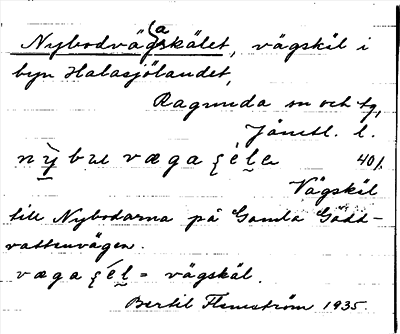 Nybodväg(a)skälet, vägskäl i
byn Halasjölandet,
Ragunda sn och tg,
Jämtl. l.
40/
Vägskäl
till Nybodarna på Gamla Gädd-
vattenvägen.
= vägskäl.
Bertil Flemström 1935.